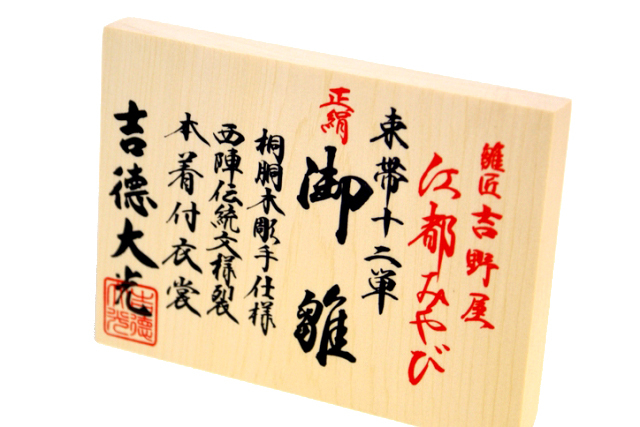 雛匠吉野屋
江都みやび
束帯十二単
正絹
御雛
桐胴木彫手仕様
西陣伝統文様裂
本着付衣裳
吉德大光
吉德大光